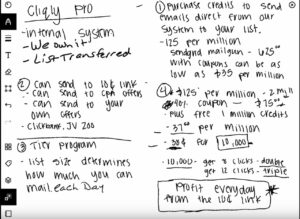 Cliqly Pro
- internal system
- We own it
- List Transferred
② Can send to 10¢ link
- Can send to CPA offers
- Can send to your own offers
- Clickbank, JV Zoo
③ Tier program
- list size determines how much you can mail each Day
① Purchase credits to send emails direct from our system to your list.
- 125 per million
sendgrid mailgun - 625⁰⁰
with coupons can be as low as $35 per million
④ $125 per million - 2 mill
40% coupon - $150⁰⁰
plus free 1 million credits
- 37⁰⁰ per million
- 38¢ for 10,000
- 10,000 - get 8 clicks - double
get 12 clicks - triple
Profit everyday from the 10¢ link